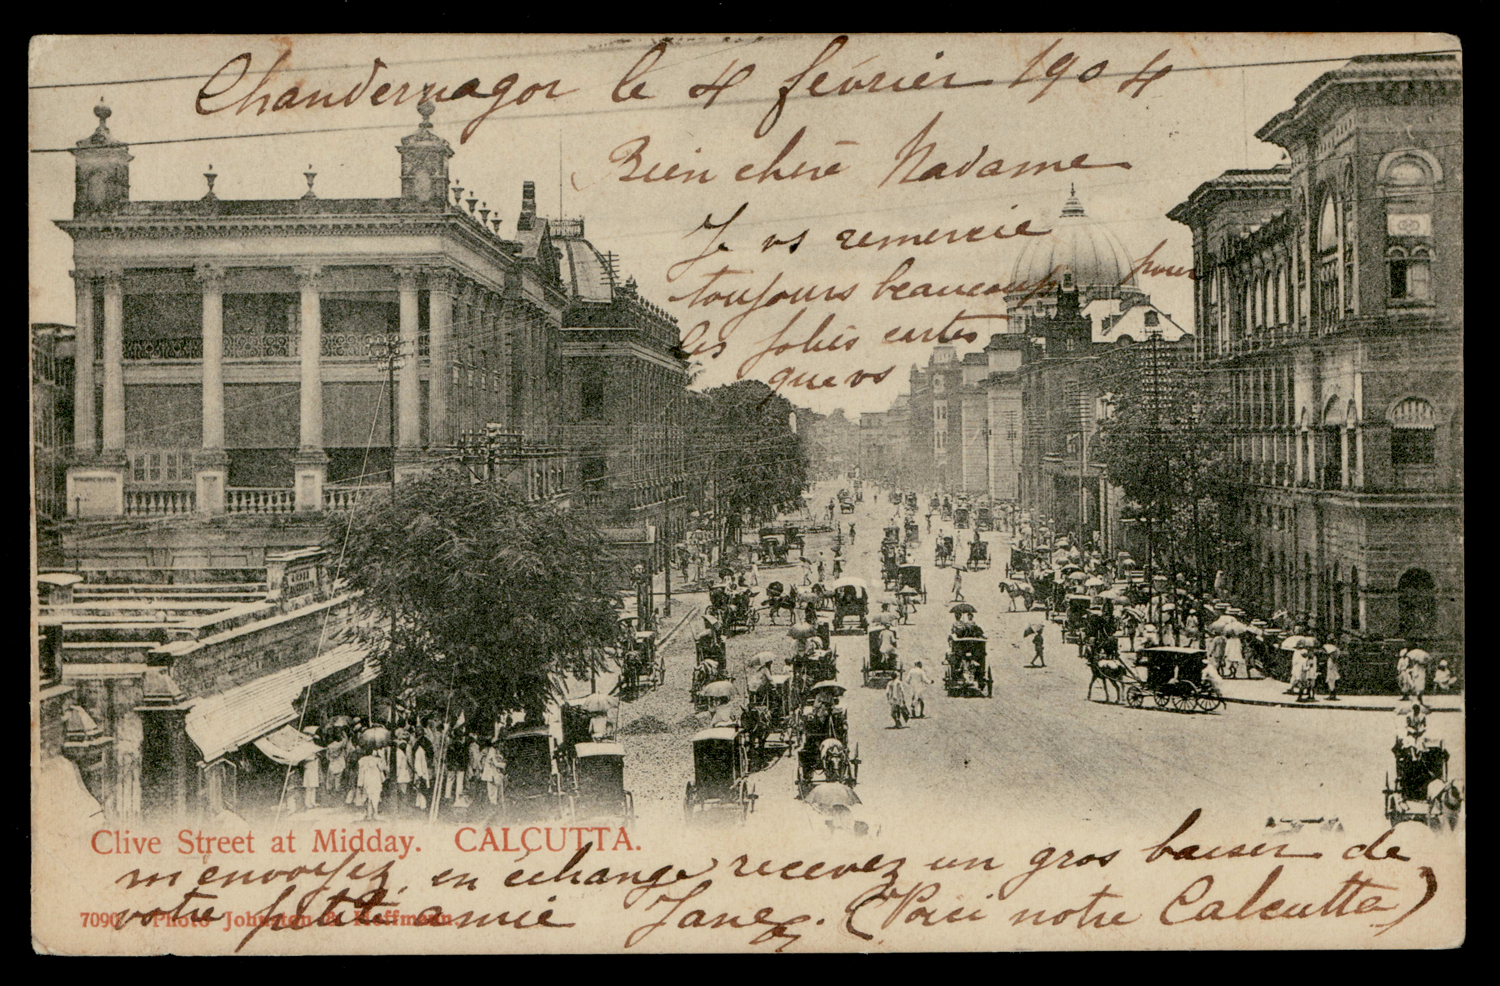 Chandernagor le 4 février 1904
Bien chère Madame
Je vs remercie
toujours beaucoup pour
les jolies cartes
que vs
Clive Street at Midday. CALCUTTA.
m'envoyez, en échange recevez un gros baiser de
votre petite amie Jane. (Voici notre Calcutta)
7090 Photo Johnston & Hoffmann